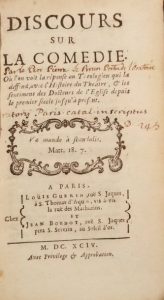 DISCOURS
SUR
LA COMEDIE,
Par le Pere Pierre Le Brun
Où l'on voit la réponse au Theologien qui la
défend, avec l'Histoire du Theatre, & les
sentimens des Docteurs de l'Eglise depuis
le premier siecle jusqu'à present.
Paris catal. inscriptus
Væ mundo à scandalis.
Matt. 18. 7.
A PARIS,
Chez
LOUIS GUERIN, ruë S. Jaques,
à S. Thomas d'Aquin, vis-à-vis
la ruë des Mathurins.
ET
JEAN BOUDOT, ruë S. Jaques
prés S. Severin, au Soleil d'or.
M. DC. XCIV.
Avec Privilege & Approbation.